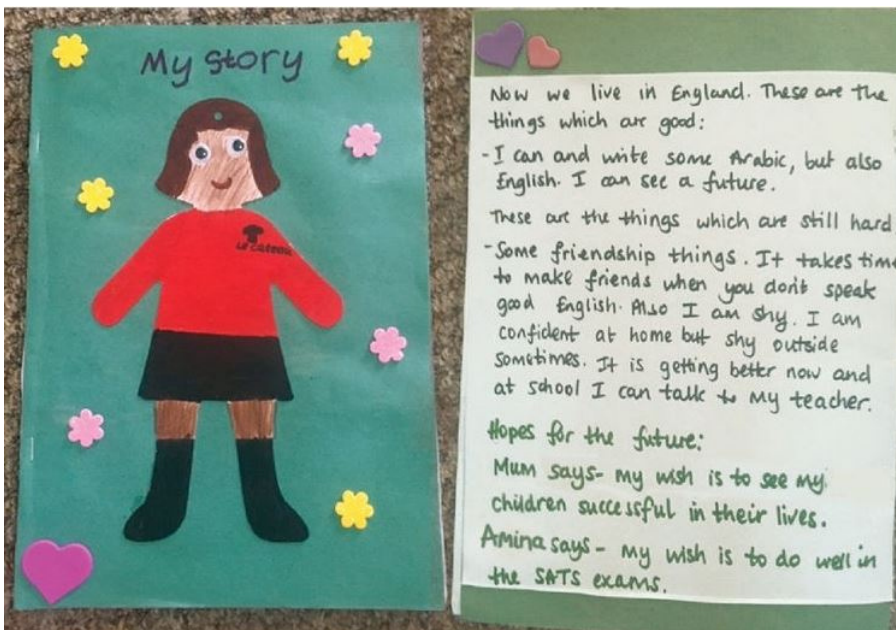 My story
Le Cateau
Now we live in England. These are the
things which are good:
- I can and write some Arabic, but also
English. I can see a future.
These are the things which are still hard
- Some friendship things. It takes time
to make friends when you don't speak
good English. Also I am shy. I am
confident at home but shy outside
sometimes. It is getting better now and
at school I can talk to my teacher.
Hopes for the future:
Mum says- my wish is to see my
children successful in their lives.
Amina says - my wish is to do well in
the SATS exams.